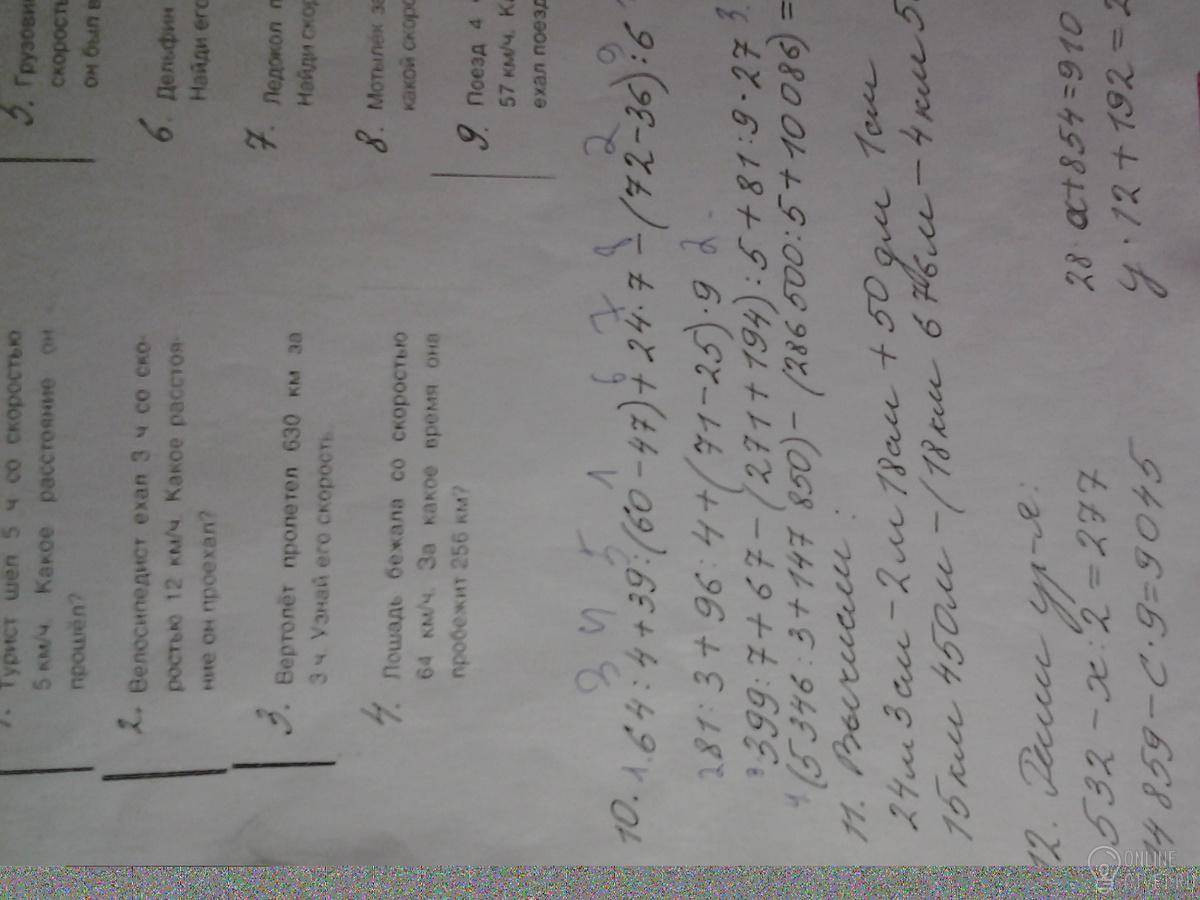 1. Турист шёл 5 ч со скоростью
5 км/ч. Какое расстояние он
прошёл?
2. Велосипедист ехал 3 ч со ско-
ростью 12 км/ч. Какое расстоя-
ние он проехал?
3. Вертолёт пролетел 630 км за
3 ч. Узнай его скорость.
4. Лошадь бежала со скоростью
64 км/ч. За какое время она
пробежит 256 км?
5. Грузови
скорость
он был в
6. Дельфин
Найди его
7. Ледокол п
Найди скор
8. Мотылек за
какой скоро
9. Поезд 4 ч
57 км/ч. Ка
ехал поезд
3 4 5 1 6 7 8 2 9
10. 1. 64 : 4 + 39 : (60 - 47) + 24 · 7 - (72 - 36) : 6
2 81 : 3 + 96 : 4 + (71 - 25) · 9 2.
3 399 : 7 + 67 - (271 + 194) : 5 + 81 : 9 · 27 3.
4 (5346 : 3 + 147 850) - (286 500 : 5 + 10 086) =
11. Вычисли:
24м 3см - 2м 18см + 50дм 1см
15км 450м - (18км 676м - 4км 5
12. Реши ур-я:
532 - x : 2 = 277
14 859 - c · 9 = 9045
28 · a + 854 = 910
y · 12 + 192 = 2
ONLINE
OTVET.RU